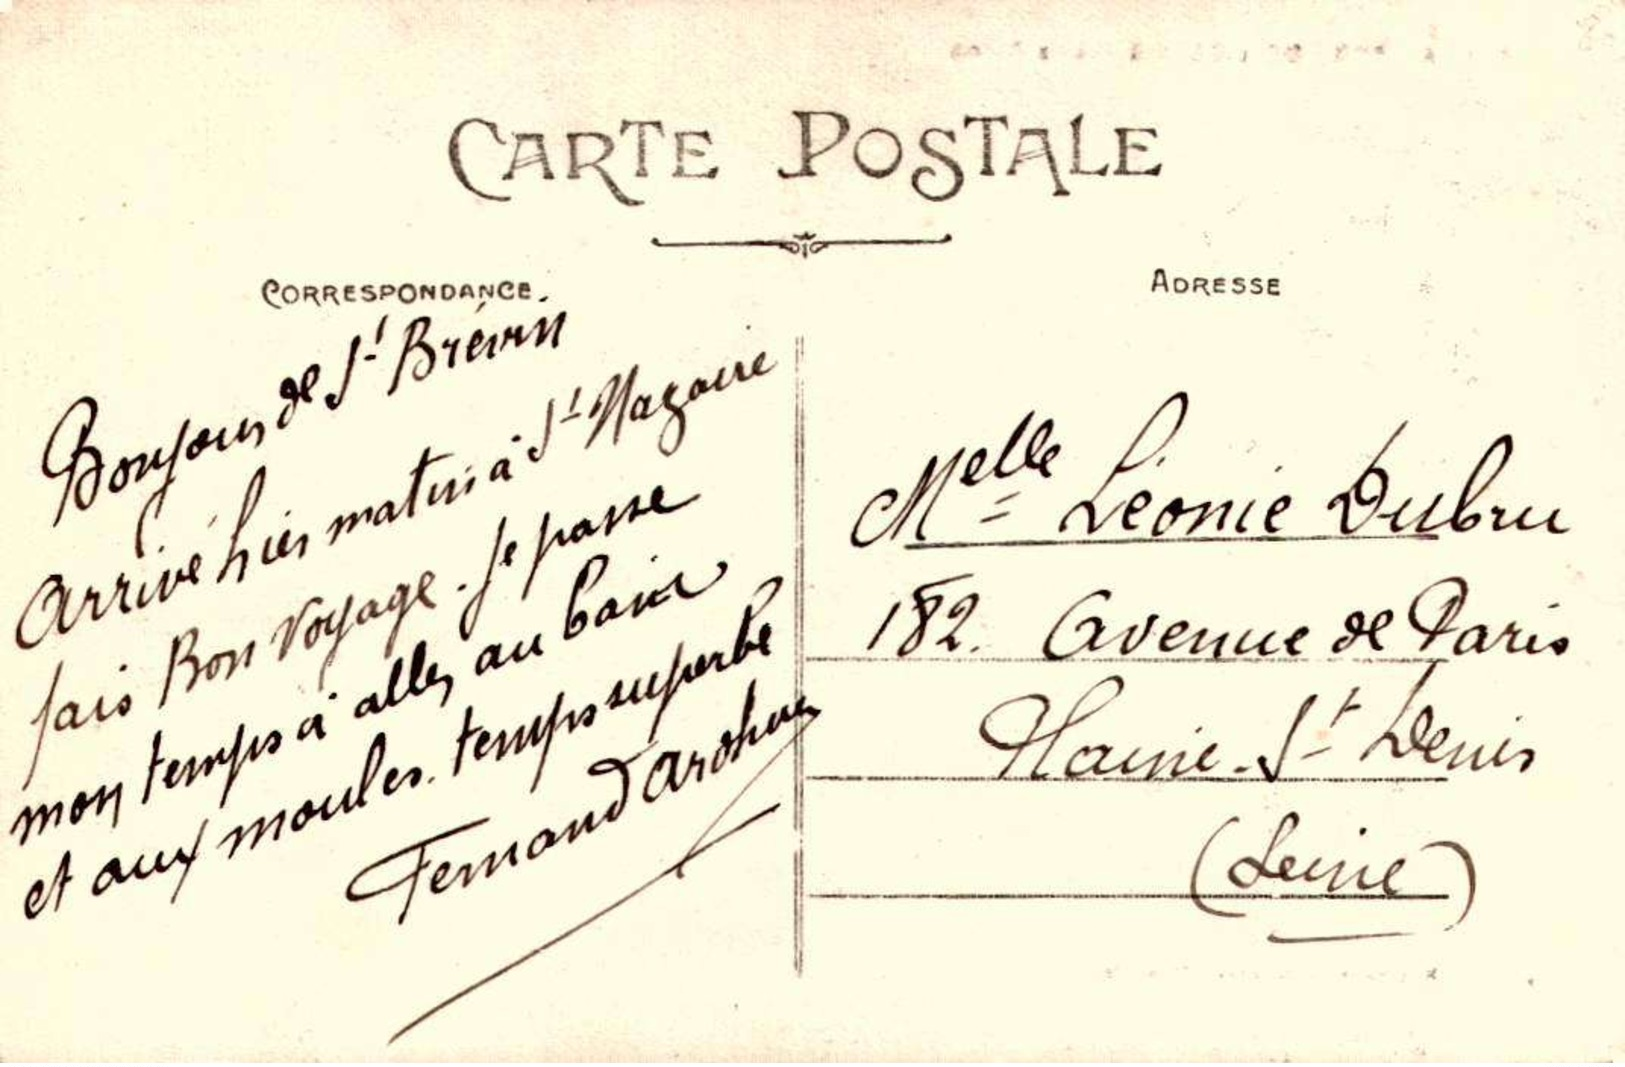 CARTE POSTALE
CORRESPONDANCE.
ADRESSE
Bonjour de St Brévin
Arrivé hier matin à St Nazaire
fais Bon Voyage. Je passe
mon temps à aller au bain
et aux moules. temps superbe
Fernand
Melle Léonie Dubru
182. Avenue de Paris
Plaine-St Denis
(Seine)